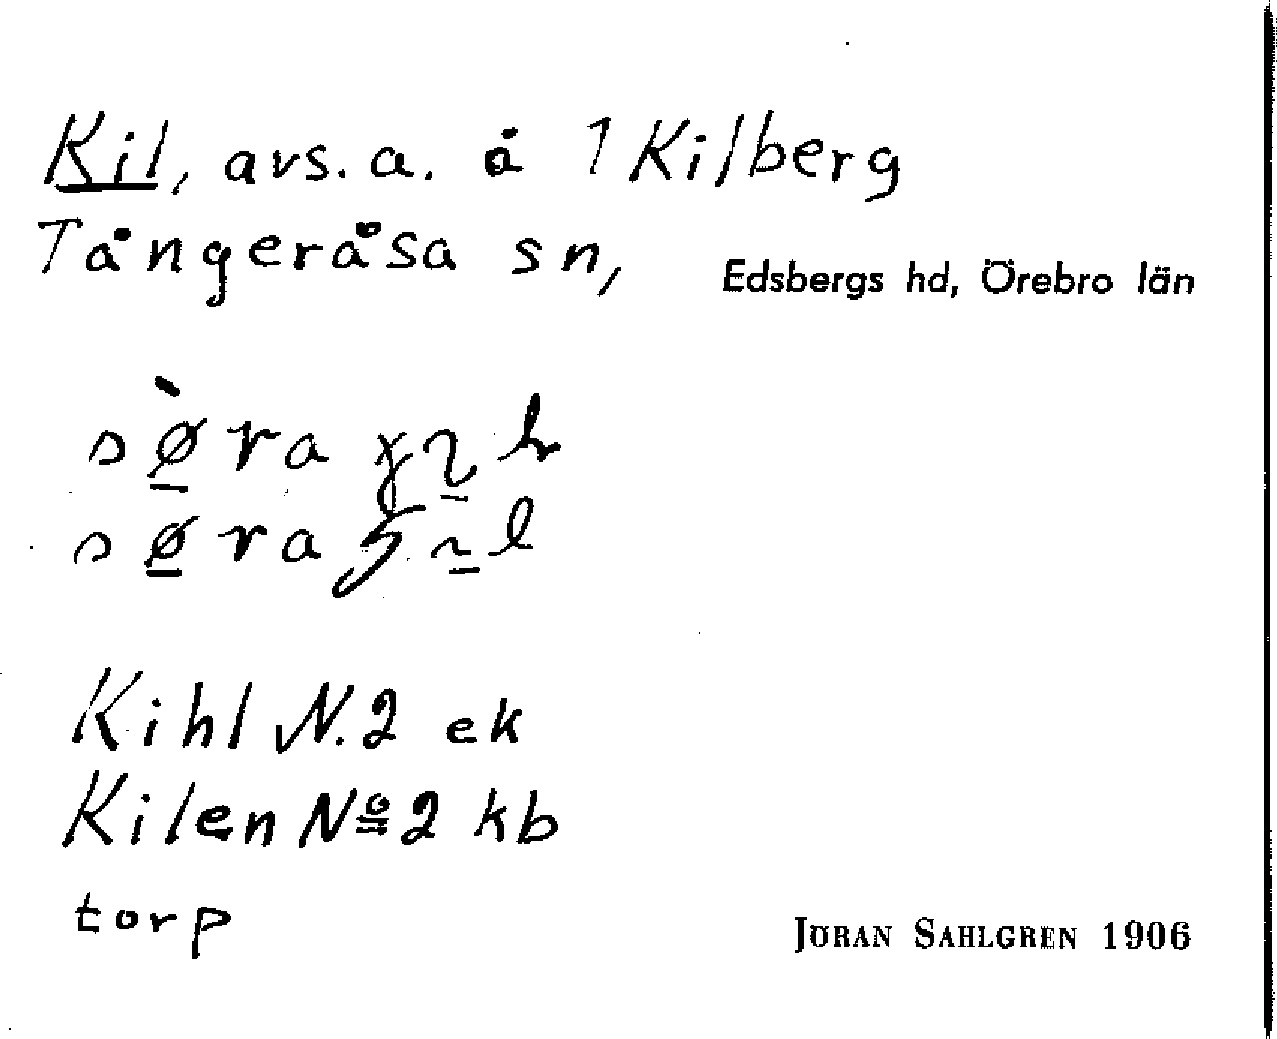 Kil, avs. a. å 1 Kilberg
Tångeråsa sn, Edsbergs hd, Örebro län
sø̠̀ra
sø̠ra
Kihl N. 2 ek
Kilen Nº 2 kb
torp
JÖRAN SAHLGREN 1906